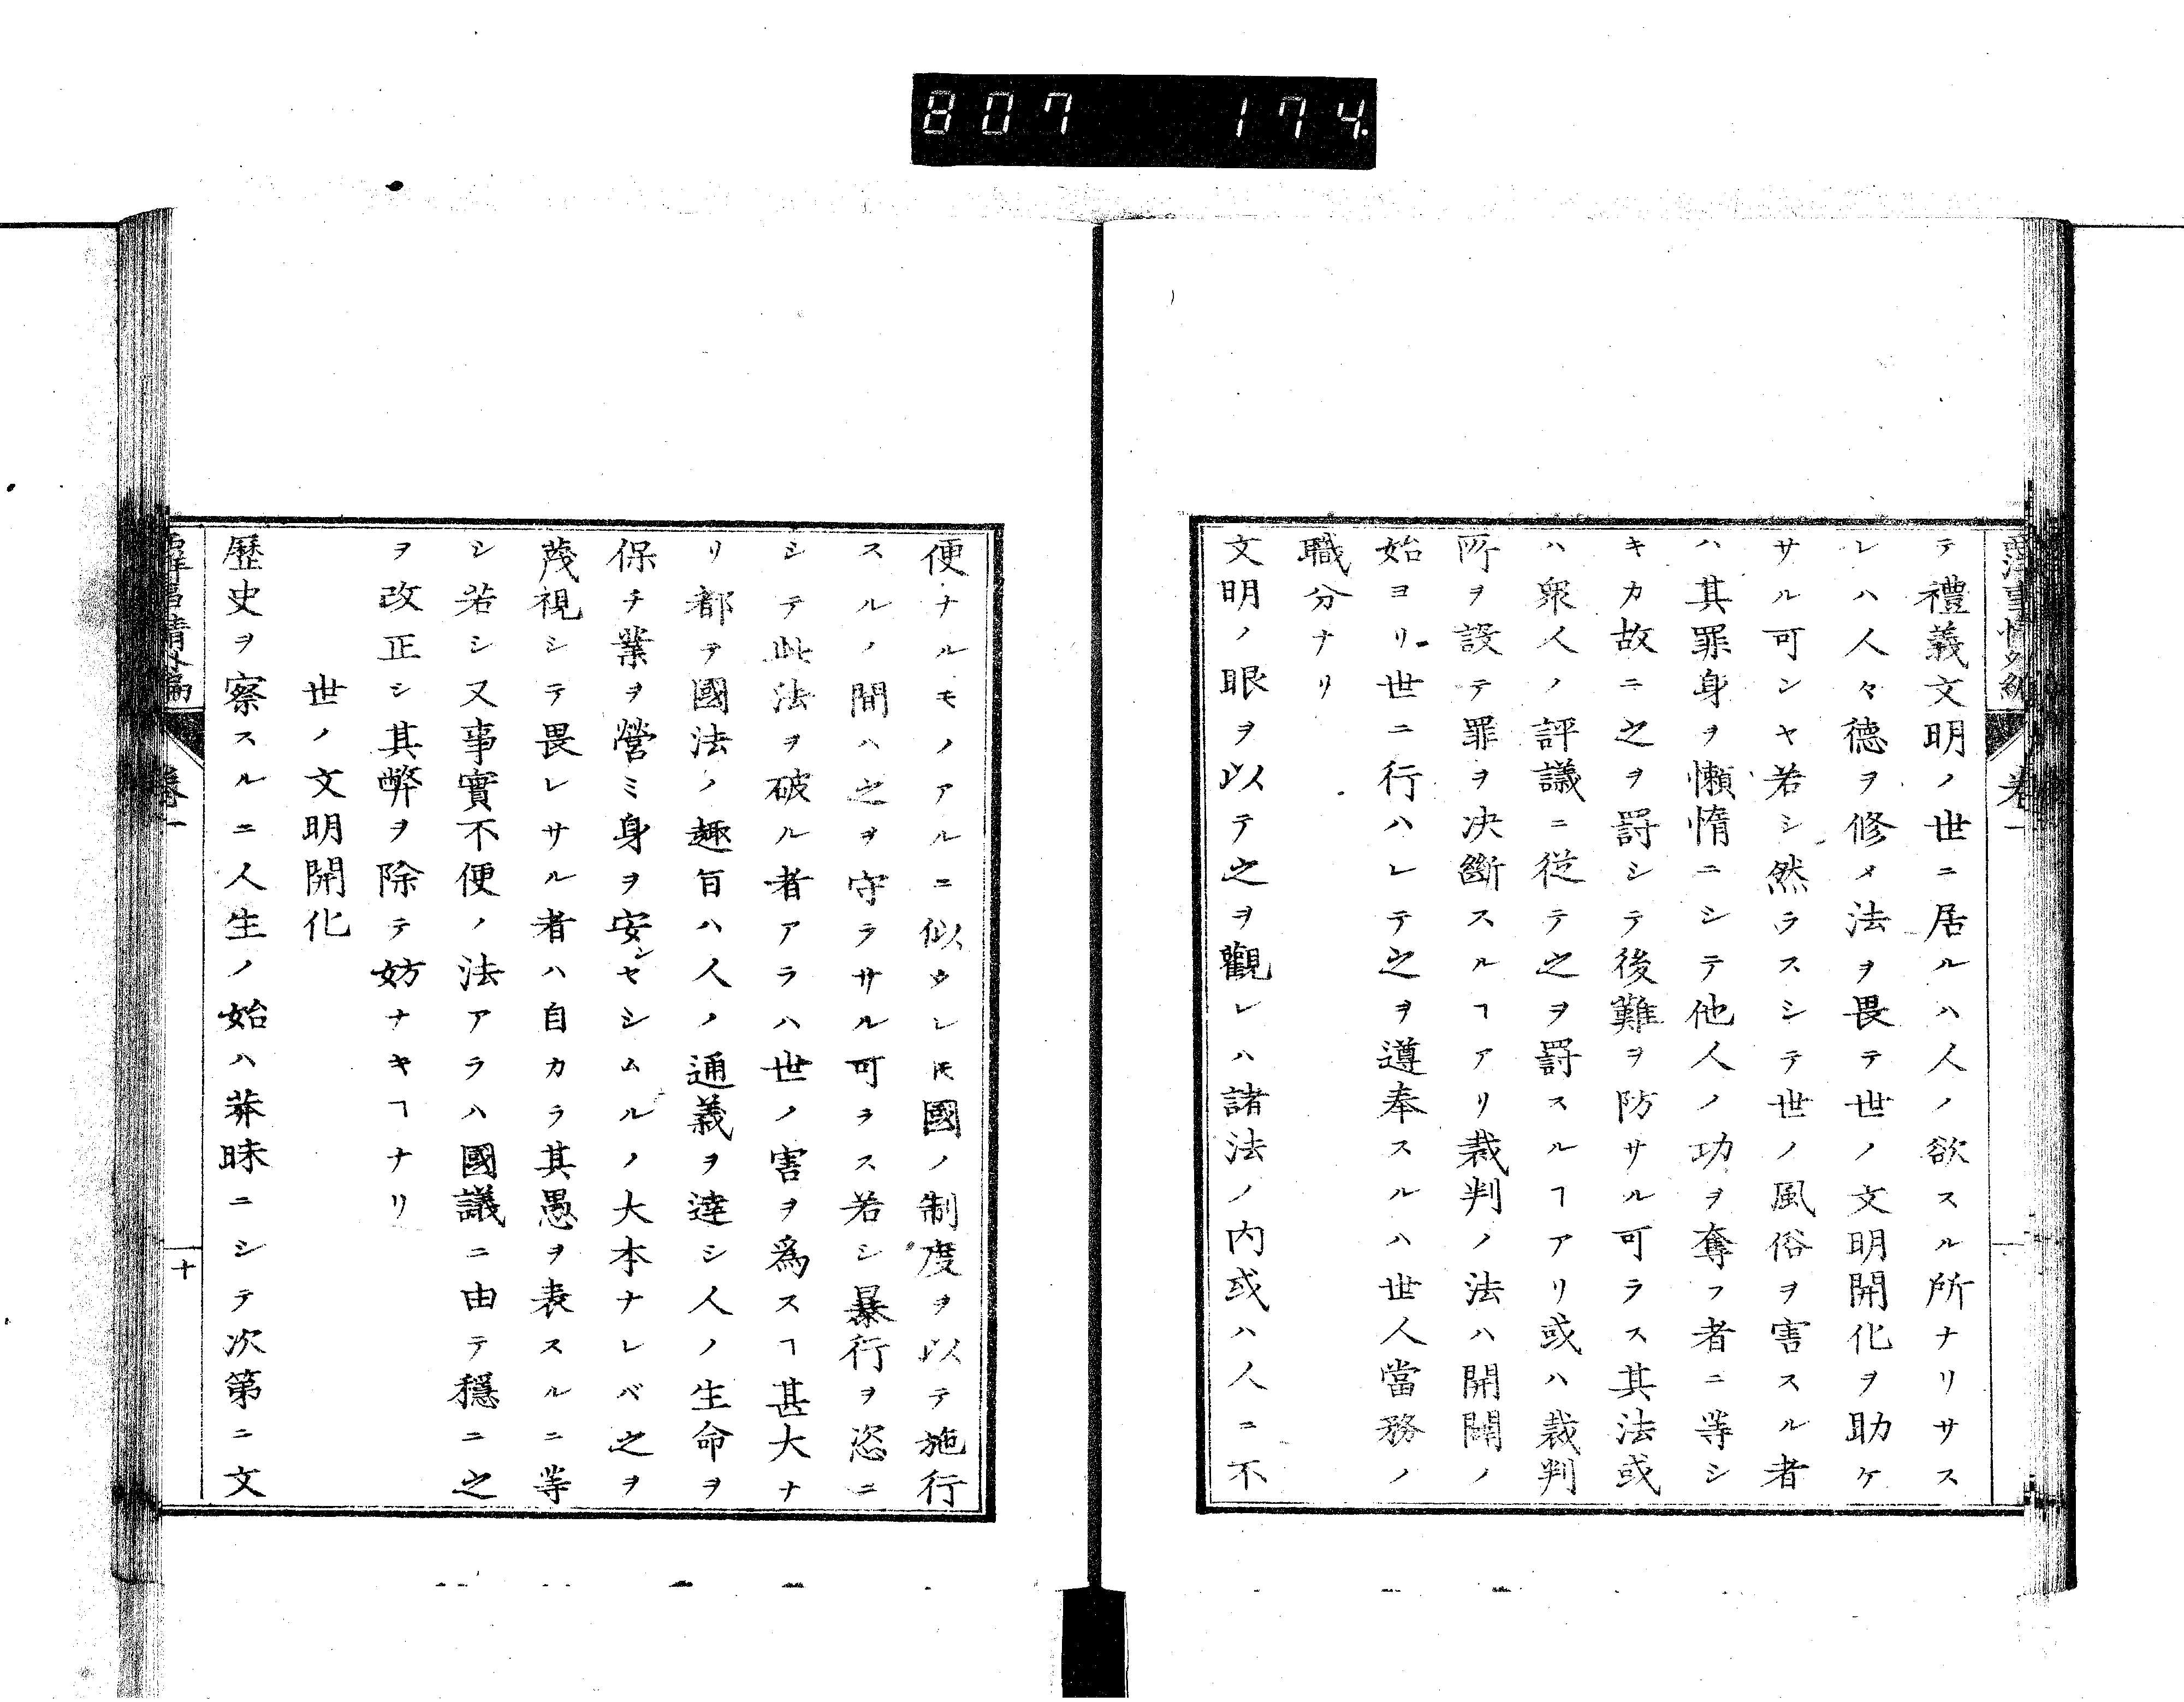 807 174.
西洋事情外編 卷一
テ禮義文明ノ世ニ居ルハ人ノ欲スル所ナリサス
レハ人々德ヲ修メ法ヲ畏テ世ノ文明開化ヲ助ケ
サル可ンヤ若シ然ラスシテ世ノ風俗ヲ害スル者
ハ其罪身ヲ懶惰ニシテ他人ノ功ヲ奪フ者ニ等シ
キカ故ニ之ヲ罸シテ後難ヲ防サル可ラス其法或
ハ衆人ノ評議ニ從テ之ヲ罸スルヿアリ或ハ裁判
所ヲ設テ罪ヲ决斷スルヿアリ裁判ノ法ハ開闢ノ
始ヨリ世ニ行ハレテ之ヲ遵奉スルハ世人當務ノ
職分ナリ
文明ノ眼ヲ以テ之ヲ觀レハ諸法ノ内或ハ人ニ不
便ナルモノアルニ似タレ𪜈國ノ制度ヲ以テ施行
スルノ間ハ之ヲ守ラサル可ラス若シ暴行ヲ恣ニ
シテ此法ヲ破ル者アラハ世ノ害ヲ爲スヿ甚大ナ
リ都テ國法ノ趣旨ハ人ノ通義ヲ達シ人ノ生命ヲ
保チ業ヲ營ミ身ヲ安ンセシムルノ大本ナレバ之ヲ
蔑視シテ畏レサル者ハ自カラ其愚ヲ表スルニ等
シ若シ又事實不便ノ法アラハ國議ニ由テ穩ニ之
ヲ改正シ其弊ヲ除テ妨ナキヿナリ
世ノ文明開化
歷史ヲ察スルニ人生ノ始ハ莽昧ニシテ次第ニ文
西洋事情外編 卷一 十